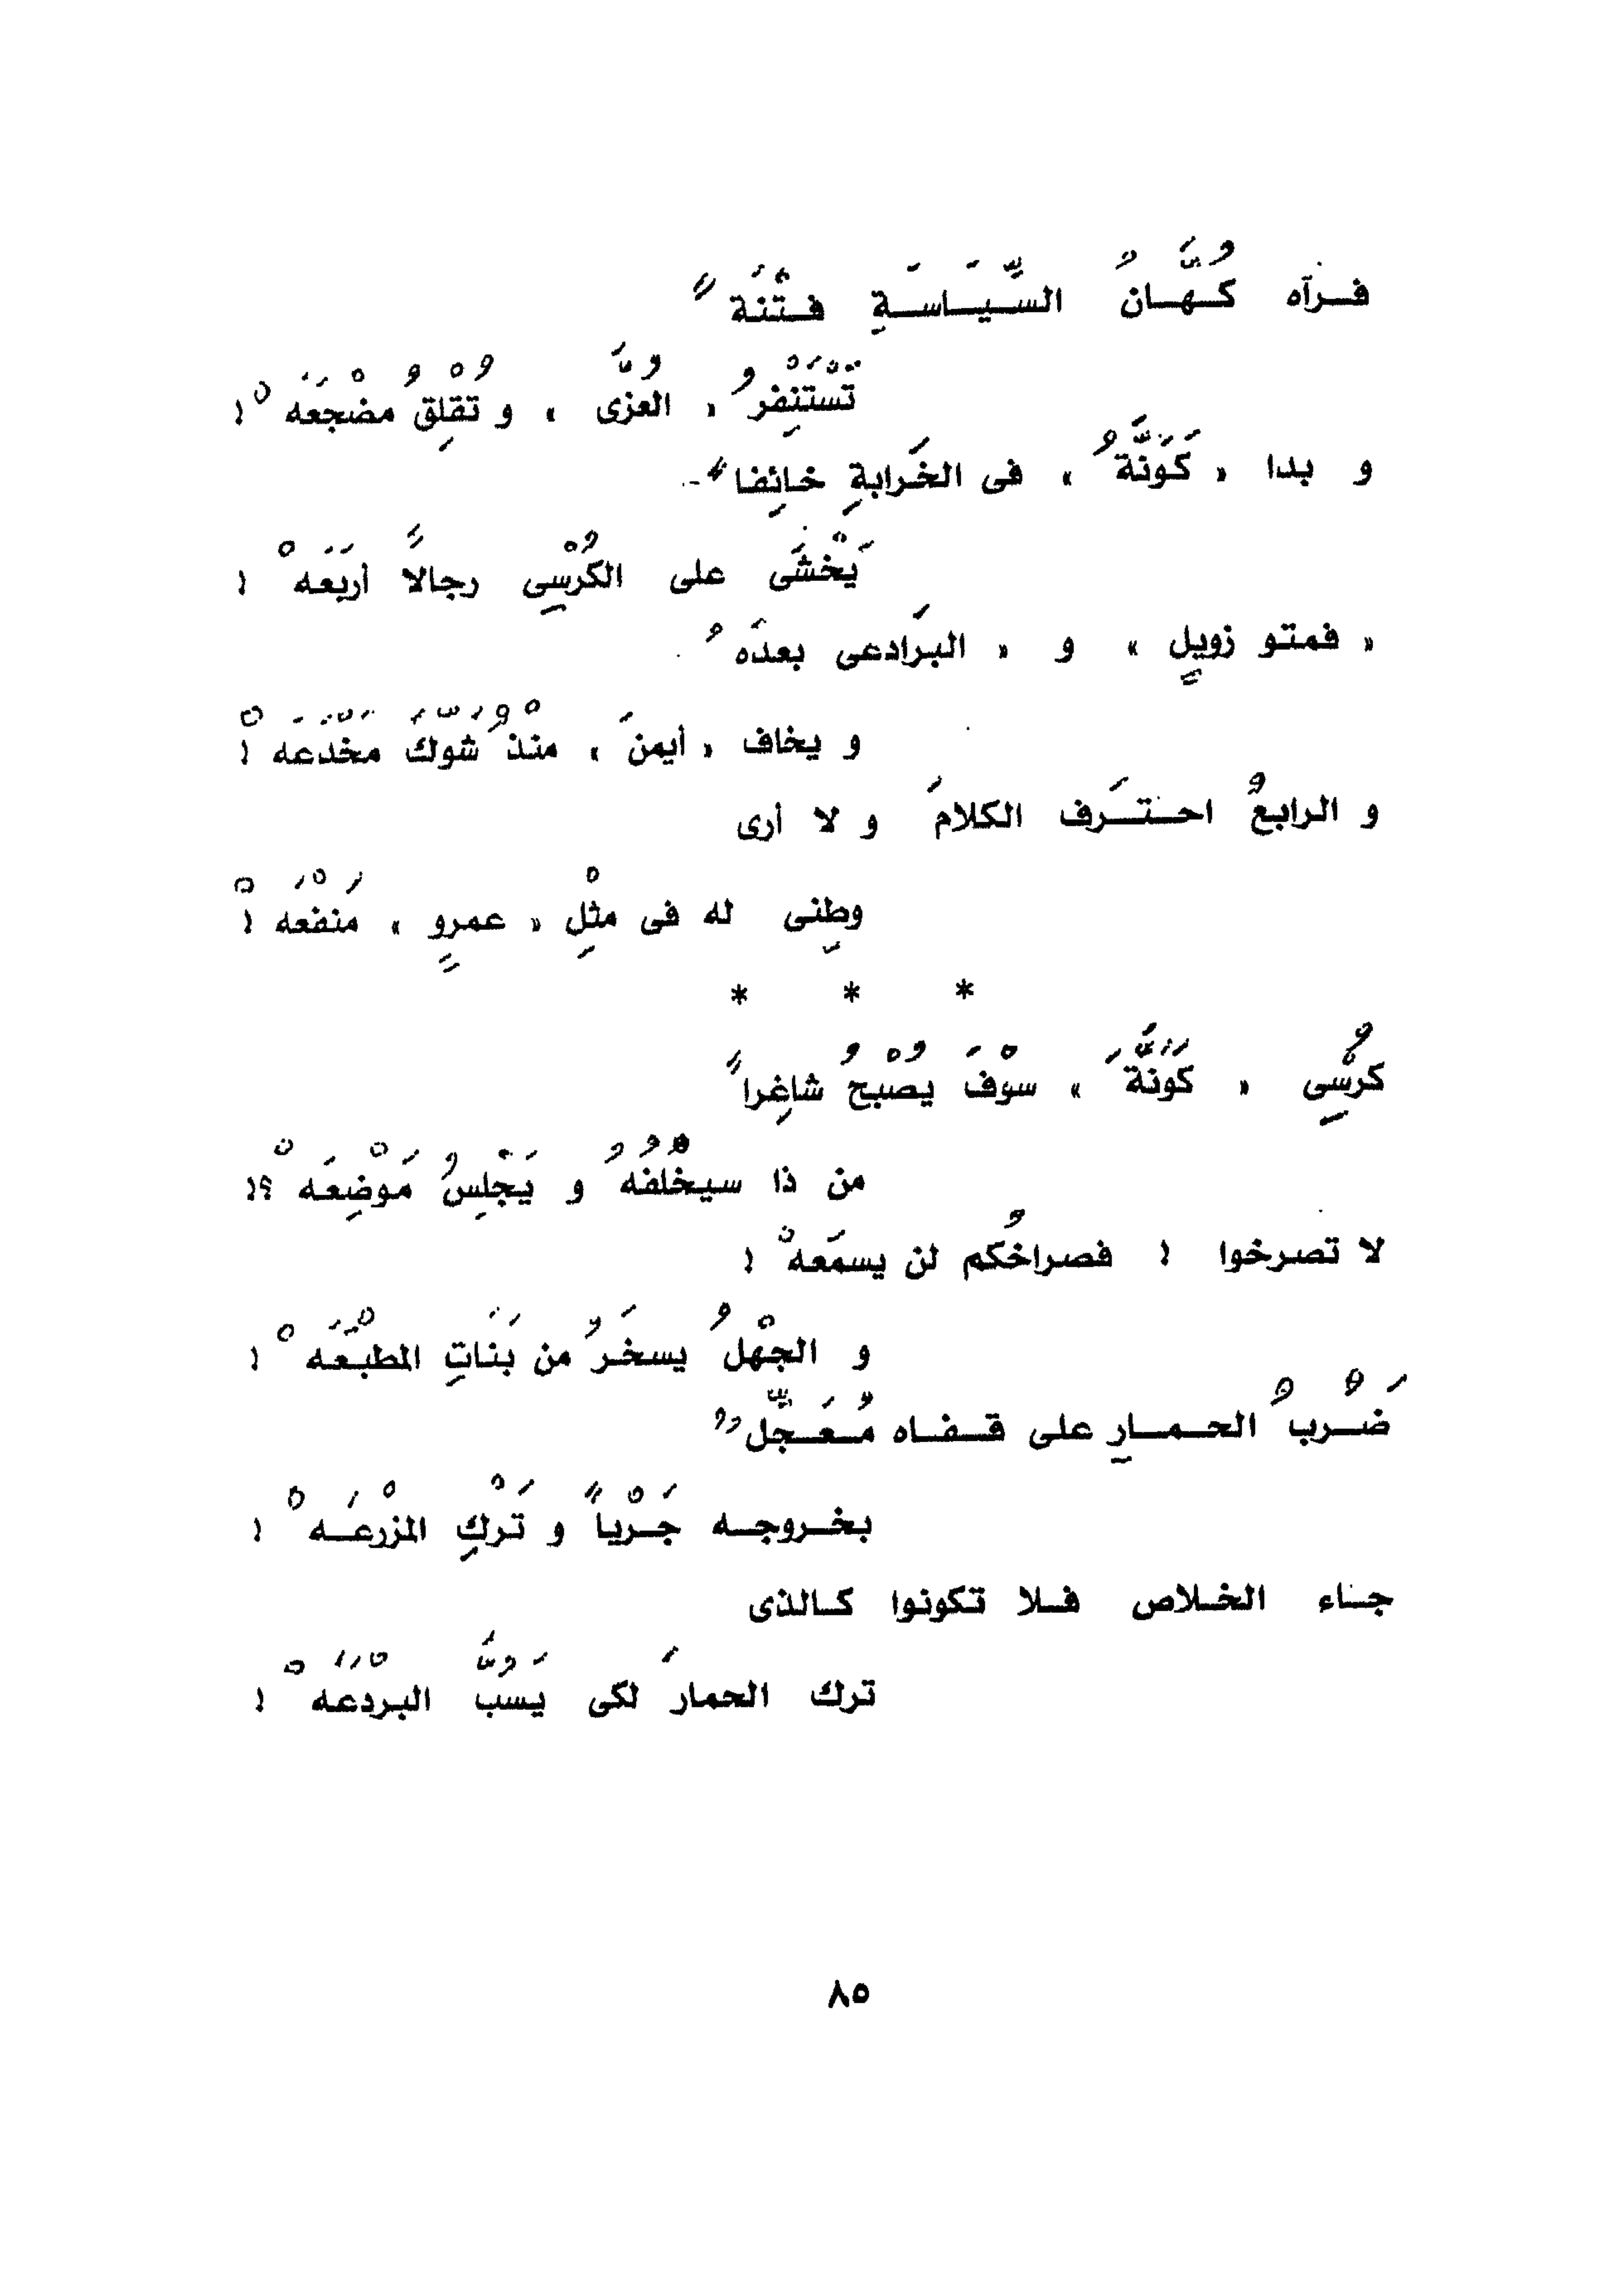 فرآه كُهَّانُ السِّيَاسَةِ فِتْنَةً
تَسْتَنْفِرُ « العزَّى » و تُقْلِقُ مضْجَعَهْ !
و بدا « كَوَنَّةُ » فى الخَرابةِ خائِفاً
يَخْشَى على الكُرْسِى رجالاً أربَعَهْ !
« فمتو زويلٍ » و « البرَادعى بعدَهُ
و يخاف « أيمنَ » منْذُ شَوَّكَ مخَدَّعَهْ !
و الرابعُ احترَف الكلامَ و لا أرى
وطنِى له فى مثْلِ « عمرٍو » مَنْفَعَهْ !
* * *
كرْسُِى « كَوَنَّةَ » سوْفَ يُصْبحُ شاغِراً
من ذا سيخْلُفُهُ و يَجْلِسُ مَوْضِعَهْ ؟!
لا تصرخوا ! فصراخُكم لن يسمَعهْ !
و الجهْلُ يسخَرُ من بَنَاتِ المطْبَعَهْ !
ضَرْبُ الحمارِ على قفاه مُعَجِّلٌ
بخروجه جَرْياً و تَرْكِ المزْرعَهْ !
جاء الخلاص فلا تكونوا كالذى
ترك الحمارَ لكى يَسُبَّ البرْدَعَهْ !
٨٥